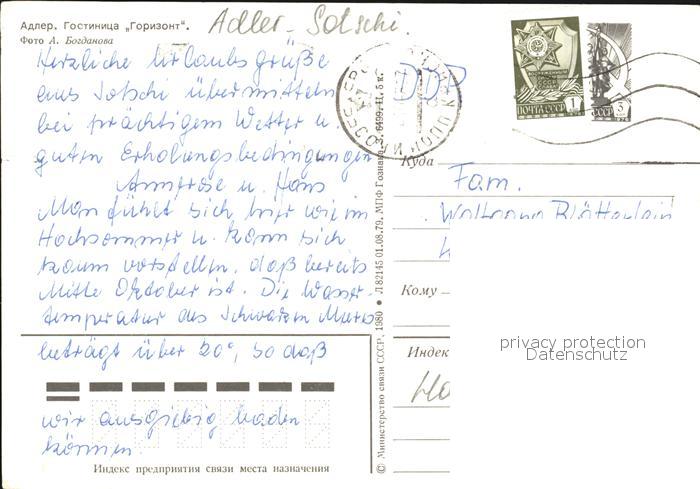 Адлер. Гостиница „Горизонт".
Фото А. Богданова
Adler - Sotschi.
Herzliche Urlaubsgrüße
aus Sotschi übermitteln
bei prächtigem Wetter u.
guten Erholungsbedingungen
Annerose u. Hans
Man fühlt sich hier wie im
Hochsommer u. kann sich
kaum vorstellen, daß bereits
Mitte Oktober ist. Die Wasser-
temperatur des Schwarzen Meeres
beträgt über 20°, so daß
wir ausgiebig baden
können.
Индекс предприятия связи места назначения
© Министерство связи СССР, 1980 ● Л 82145 01.08.79. МПФ Гознака.
DDR
ПОЧТА СССР 1
СССР 3
Куда
Fam.
Wolfgang
Кому
Индекс
privacy protection
Datenschutz